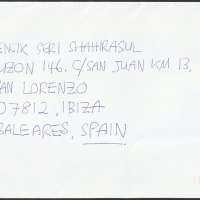 ENCIK SERI SHAHRASUL
BUZON 146. C/SAN JUAN KM 13,
SAN LORENZO
07812, IBIZA
BALEARES, SPAIN